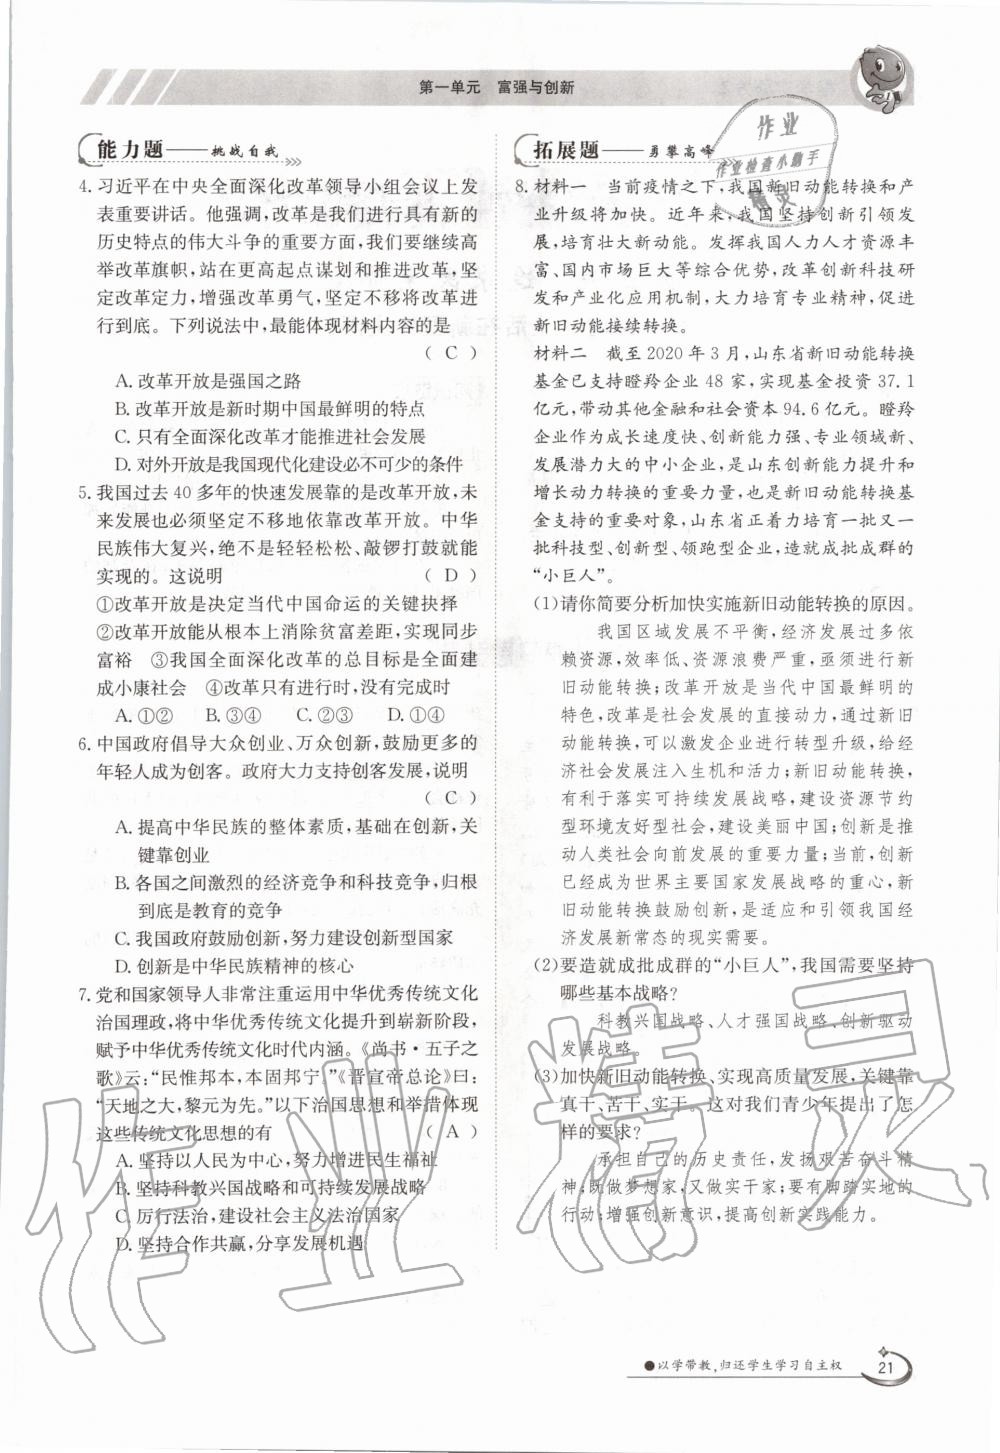 第一单元　富强与创新
能力题——挑战自我
4. 习近平在中央全面深化改革领导小组会议上发
表重要讲话。他强调,改革是我们进行具有新的
历史特点的伟大斗争的重要方面,我们要继续高
举改革旗帜,站在更高起点谋划和推进改革,坚
定改革定力,增强改革勇气,坚定不移将改革进
行到底。下列说法中,最能体现材料内容的是
( C )
A. 改革开放是强国之路
B. 改革开放是新时期中国最鲜明的特点
C. 只有全面深化改革才能推进社会发展
D. 对外开放是我国现代化建设必不可少的条件
5. 我国过去 40 多年的快速发展靠的是改革开放,未
来发展也必须坚定不移地依靠改革开放。中华
民族伟大复兴,绝不是轻轻松松、敲锣打鼓就能
实现的。这说明 ( D )
①改革开放是决定当代中国命运的关键抉择
②改革开放能从根本上消除贫富差距,实现同步
富裕　③我国全面深化改革的总目标是全面建
成小康社会　④改革只有进行时,没有完成时
A. ①②　B. ③④　C. ②③　D. ①④
6. 中国政府倡导大众创业、万众创新,鼓励更多的
年轻人成为创客。政府大力支持创客发展,说明
( C )
A. 提高中华民族的整体素质,基础在创新,关
键靠创业
B. 各国之间激烈的经济竞争和科技竞争,归根
到底是教育的竞争
C. 我国政府鼓励创新,努力建设创新型国家
D. 创新是中华民族精神的核心
7. 党和国家领导人非常注重运用中华优秀传统文化
治国理政,将中华优秀传统文化提升到崭新阶段,
赋予中华优秀传统文化时代内涵。《尚书·五子之
歌》云:“民惟邦本,本固邦宁”《晋宣帝总论》曰:
“天地之大,黎元为先。”以下治国思想和举措体现
这些传统文化思想的有 ( A )
A. 坚持以人民为中心,努力增进民生福祉
B. 坚持科教兴国战略和可持续发展战略
C. 厉行法治,建设社会主义法治国家
D. 坚持合作共赢,分享发展机遇
拓展题——勇攀高峰
8. 材料一　当前疫情之下,我国新旧动能转换和产
业升级将加快。近年来,我国坚持创新引领发
展,培育壮大新动能。发挥我国人力人才资源丰
富、国内市场巨大等综合优势,改革创新科技研
发和产业化应用机制,大力培育专业精神,促进
新旧动能接续转换。
材料二　截至 2020 年 3 月,山东省新旧动能转换
基金已支持瞪羚企业 48 家,实现基金投资 37.1
亿元,带动其他金融和社会资本 94.6 亿元。瞪羚
企业作为成长速度快、创新能力强、专业领域新、
发展潜力大的中小企业,是山东创新能力提升和
增长动力转换的重要力量,也是新旧动能转换基
金支持的重要对象,山东省正着力培育一批又一
批科技型、创新型、领跑型企业,造就成批成群的
“小巨人”。
(1)请你简要分析加快实施新旧动能转换的原因。
我国区域发展不平衡,经济发展过多依
赖资源,效率低、资源浪费严重,亟须进行新
旧动能转换;改革开放是当代中国最鲜明的
特色,改革是社会发展的直接动力,通过新旧
动能转换,可以激发企业进行转型升级,给经
济社会发展注入生机和活力;新旧动能转换,
有利于落实可持续发展战略,建设资源节约
型环境友好型社会,建设美丽中国;创新是推
动人类社会向前发展的重要力量;当前,创新
已经成为世界主要国家发展战略的重心,新
旧动能转换鼓励创新,是适应和引领我国经
济发展新常态的现实需要。
(2)要造就成批成群的“小巨人”,我国需要坚持
哪些基本战略?
科教兴国战略、人才强国战略、创新驱动
发展战略。
(3)加快新旧动能转换、实现高质量发展,关键靠
真干、苦干、实干。这对我们青少年提出了怎
样的要求?
承担自己的历史责任,发扬艰苦奋斗精
神;既做梦想家,又做实干家;要有脚踏实地的
行动;增强创新意识,提高创新实践能力。
作业
作业检查小助手
精灵
作业精灵
●以学带教,归还学生学习自主权
21